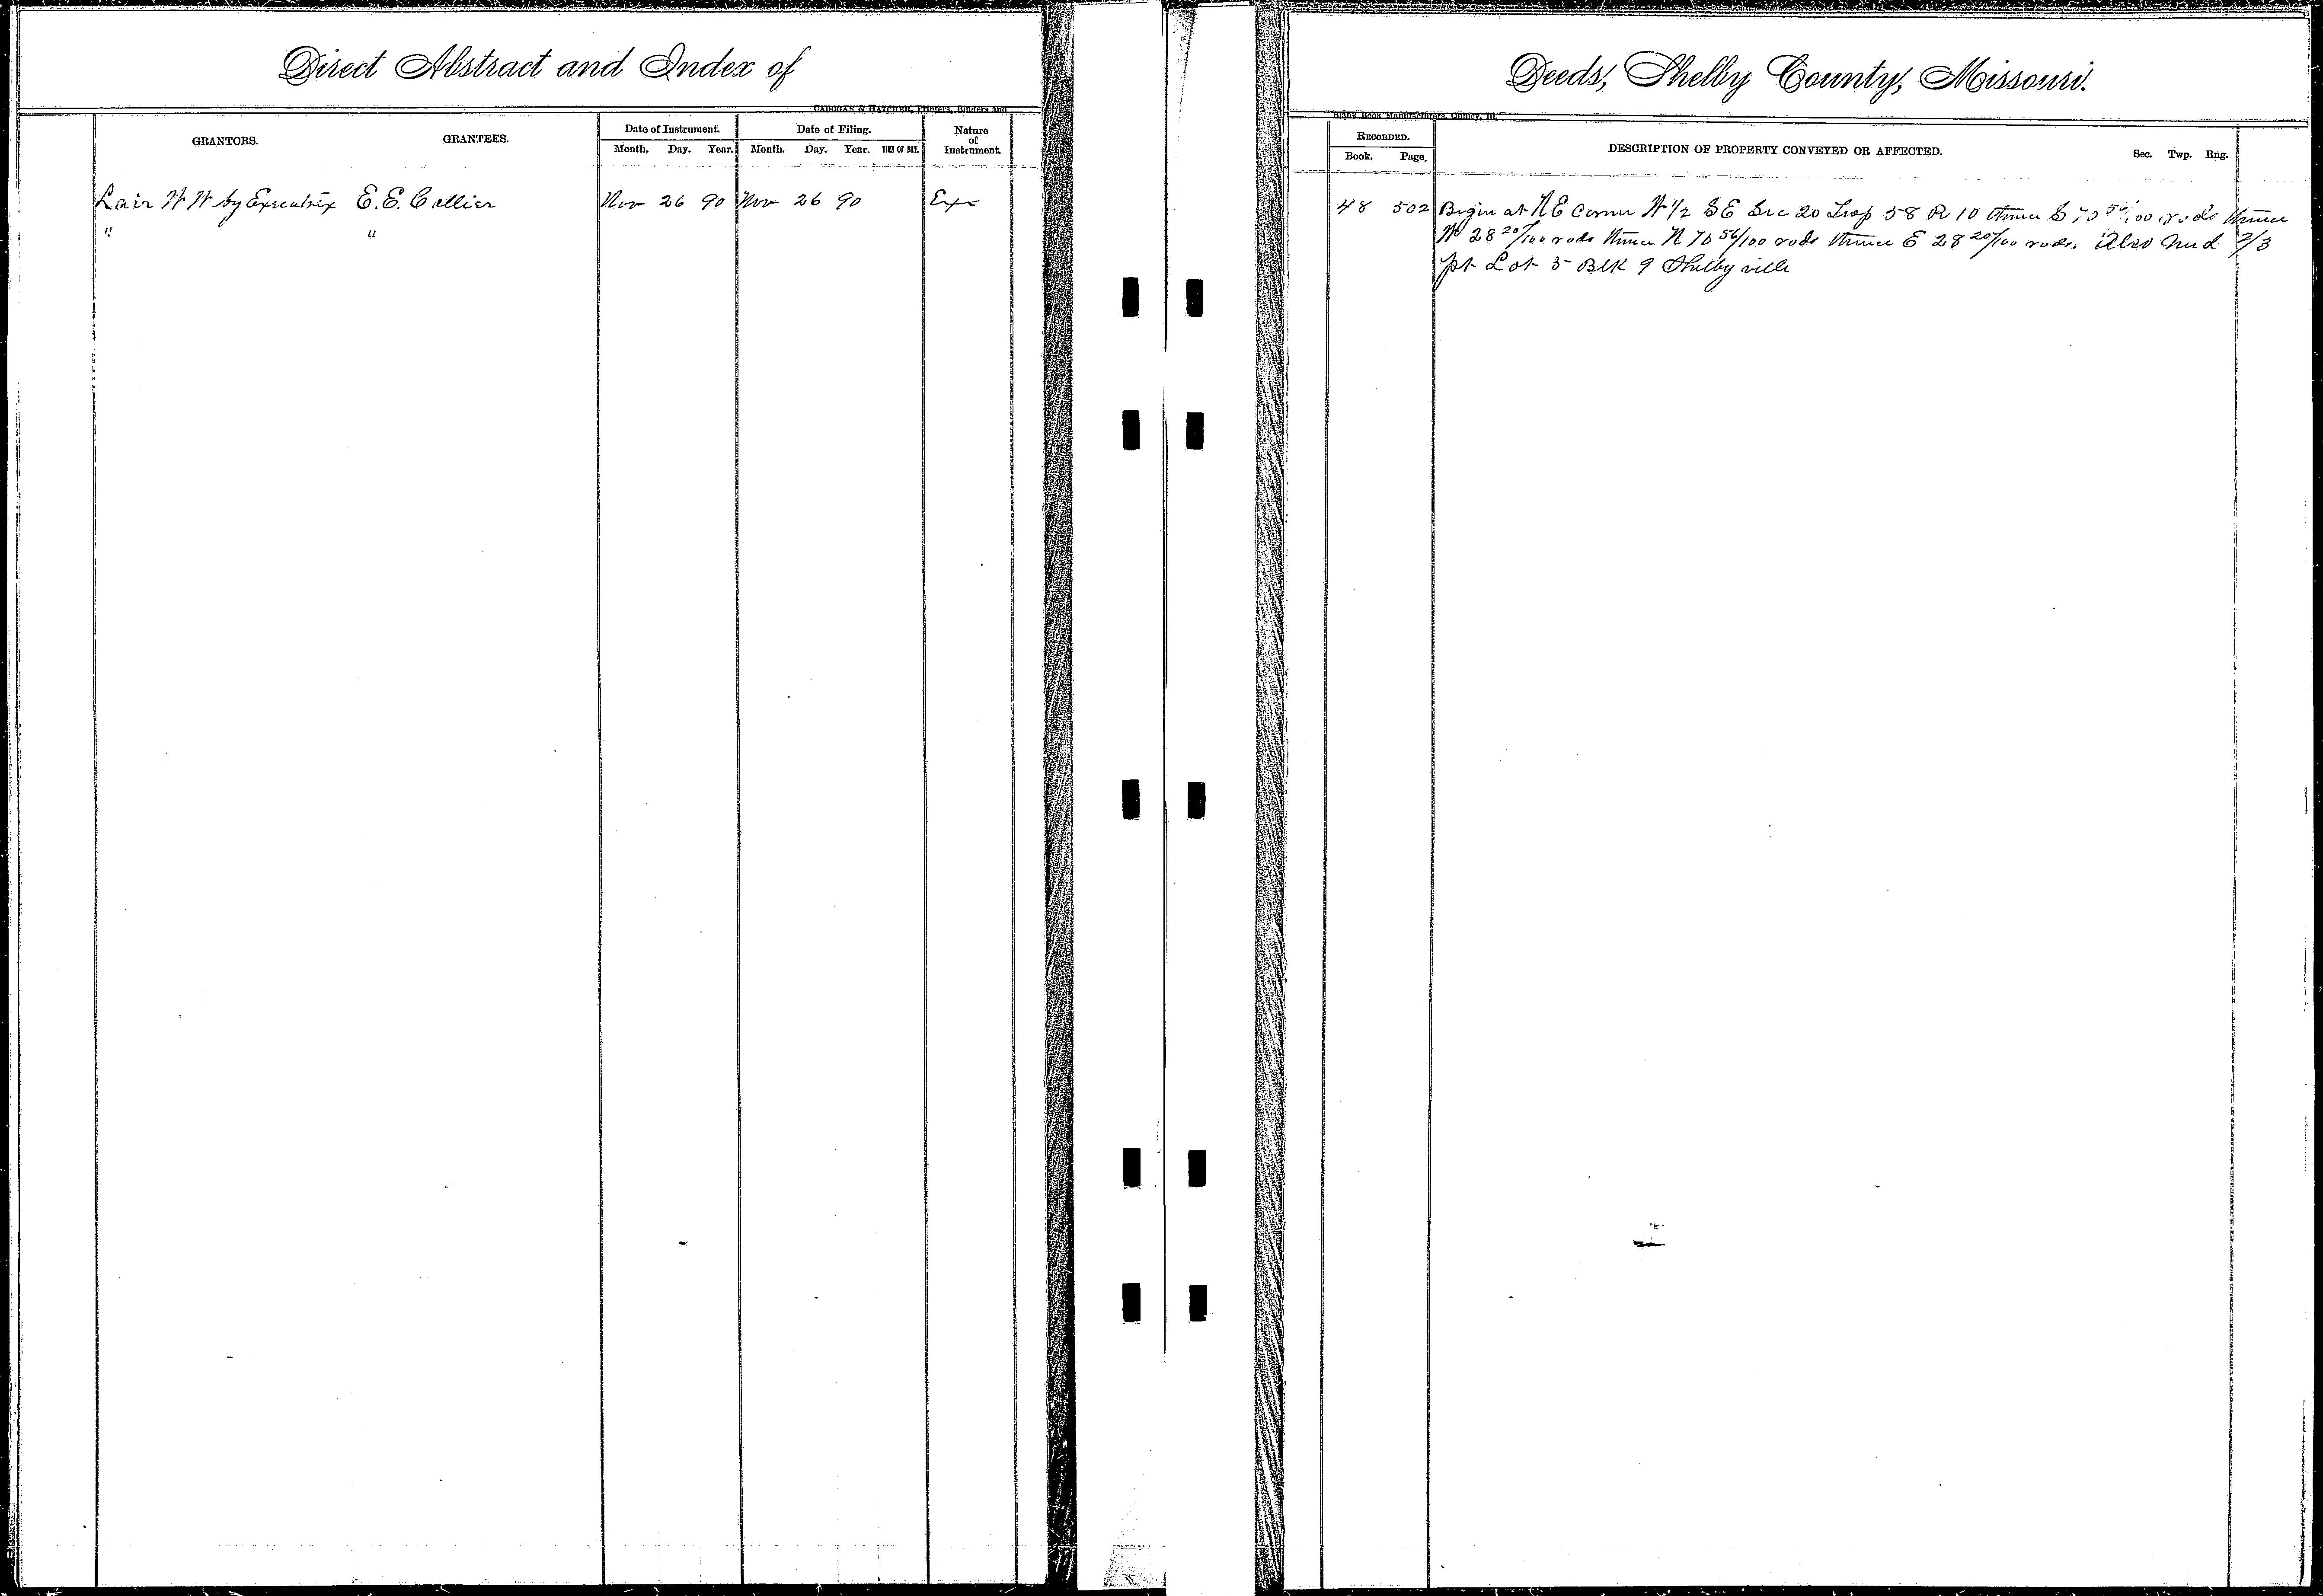 Direct Abstract and Index of
Deeds, Shelby County, Missouri.
CADOGAN & HATCHER, Printers, Binders and
Blank Book Manufacturers, Quincy, Ill.
GRANTORS. GRANTEES. Date of Instrument. Date of Filing. Nature of Instrument.
Month. Day. Year. Month. Day. Year. TIME OF DAY.
RECORDED. DESCRIPTION OF PROPERTY CONVEYED OR AFFECTED. Sec. Twp. Rng.
Book. Page.
Lair W W by Executrix E. E. Collier Nov 26 90 Nov 26 90 Exr 48 502 Begin at N E Corner W 1/2 S E Sec 20 Twp 58 R 10 thence S 56/100 rods thence
" " W 28 20/100 rods thence N 56/100 rods thence E 28 20/100 rods. Also Und 2/3
pt Lot 5 Blk 9 Shelbyville